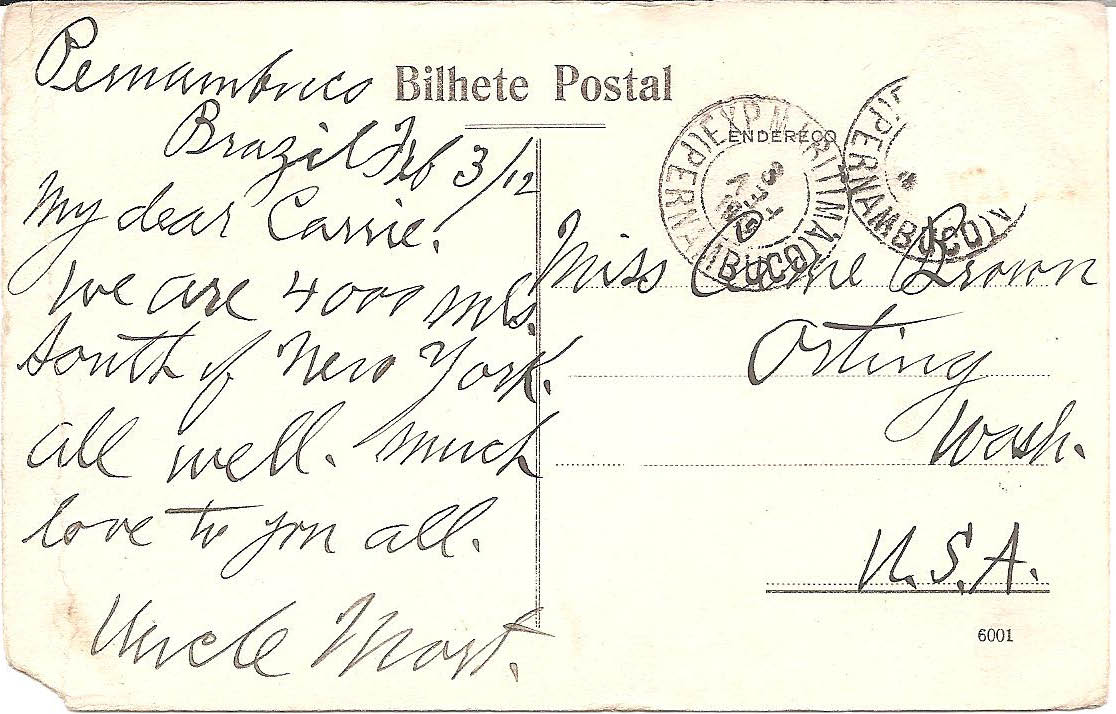 Pernambuco
Brazil Feb 3/12
My dear Carrie.
We are 4000 mls.
South of New York.
all well. Much
love to you all.
Uncle Mort.
Bilhete Postal
ENDEREÇO
EXP. MARITIMA
(PERNAMBUCO)
(PERNAMBUCO)
Miss Carrie Brown
Orting
Wash.
U.S.A.
6001